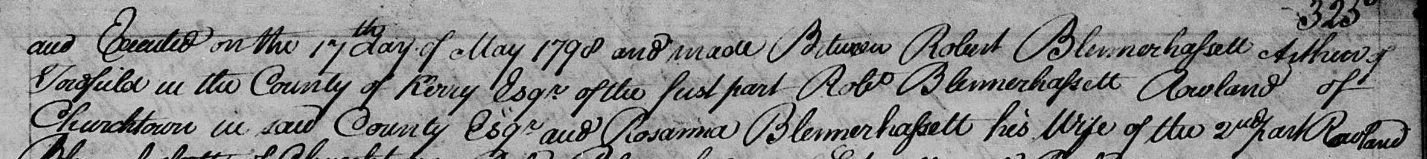 325
and Executed on the 17th day of May 1798 and made Between Robert Blennerhassett Arthur of
in the County of Kerry Esqr. of the first part Robt Blennerhassett Rowland of
Churchtown in said County Esqr and Rosanna Blennerhassett his Wife of the 2nd part Rowland